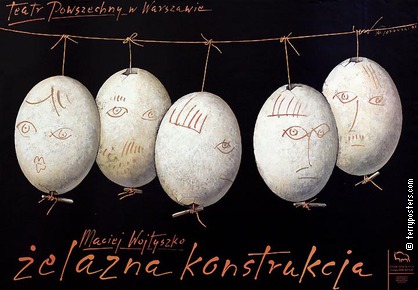 Teatr Powszechny w Warszawie
Maciej Wojtyszko
żelazna konstrukcja
© terryposters.com